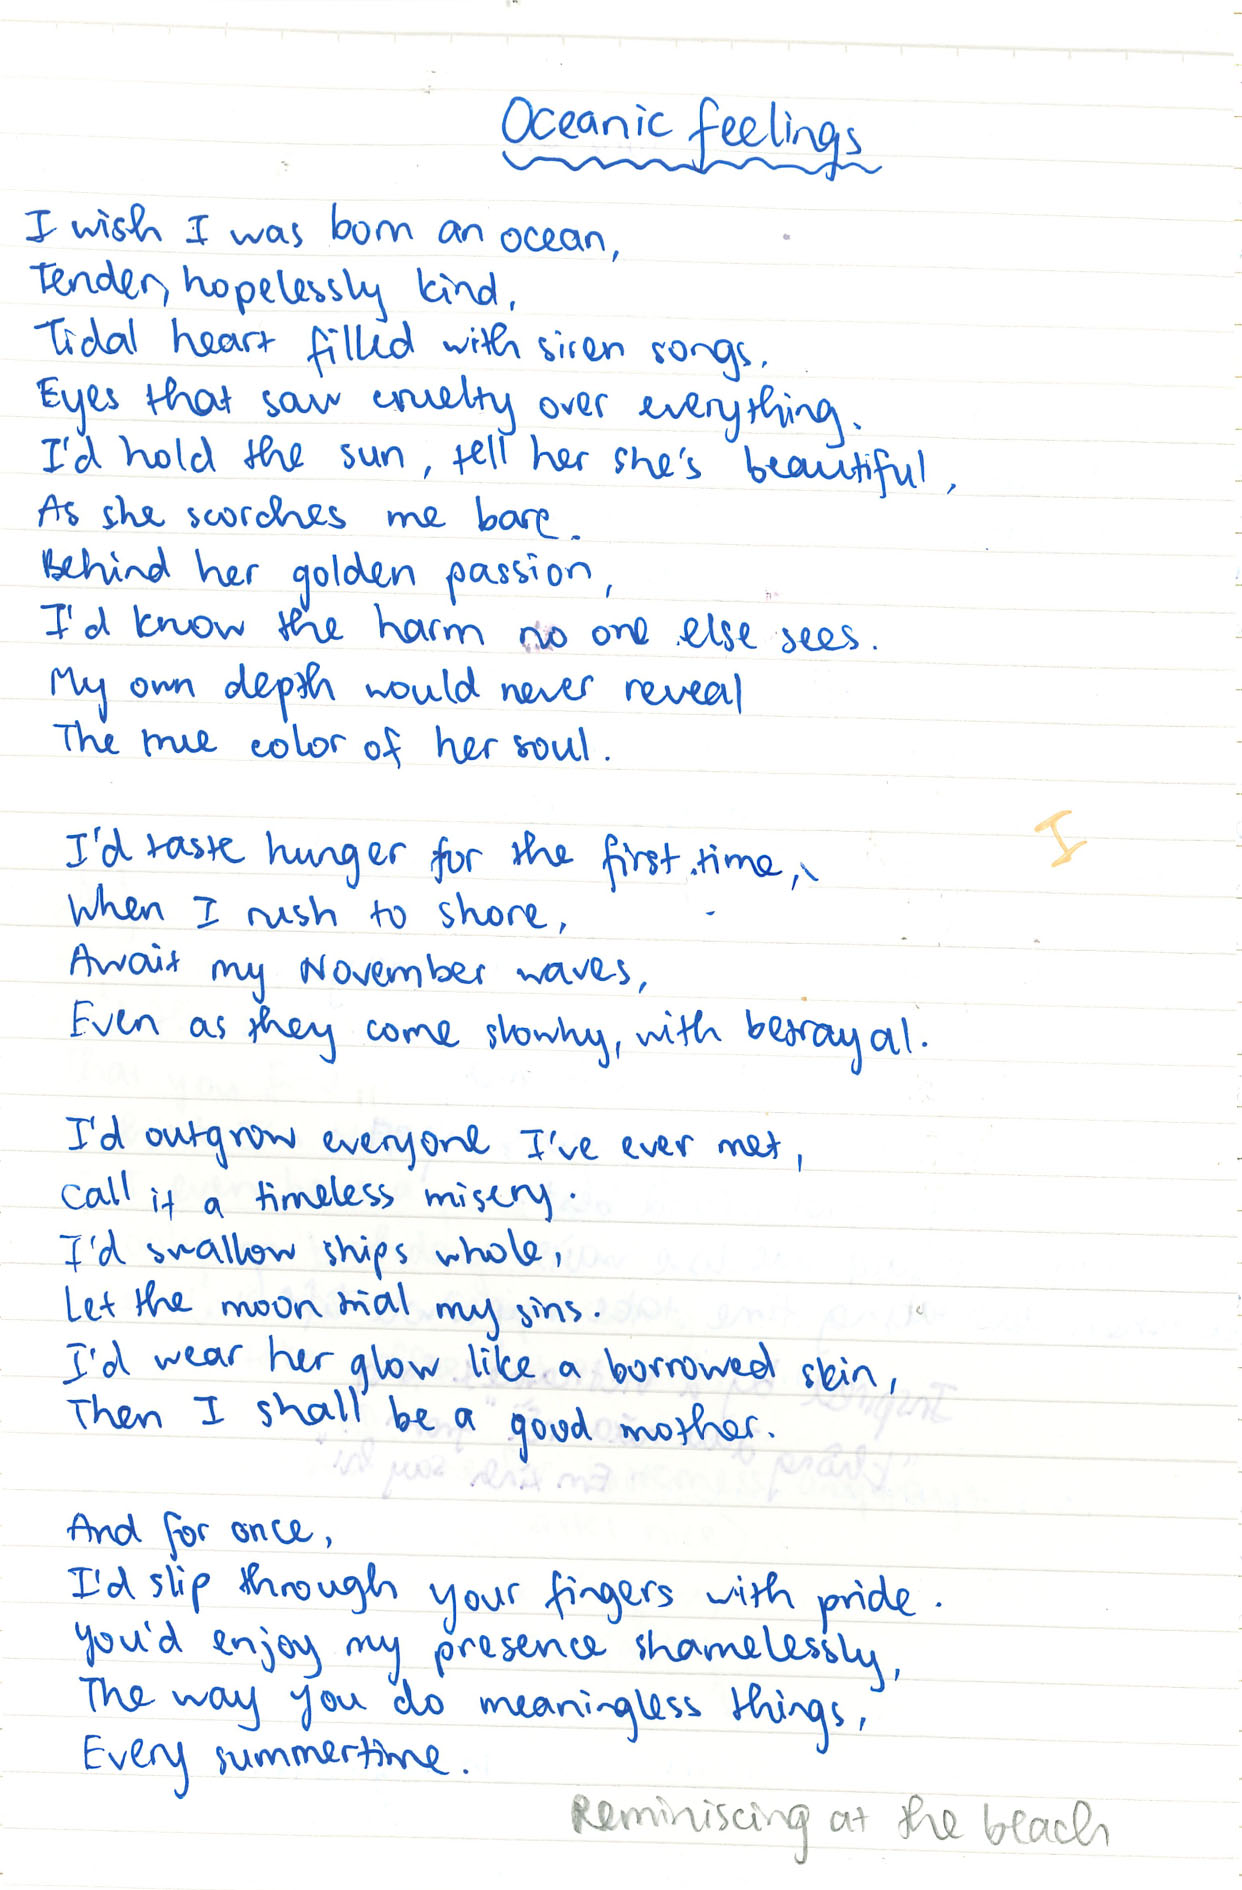 Oceanic feelings
I wish I was born an ocean,
Tender, hopelessly kind,
Tidal heart filled with siren songs,
Eyes that saw cruelty over everything.
I'd hold the sun, tell her she's beautiful,
As she scorches me bare.
Behind her golden passion,
I'd know the harm no one else sees.
My own depth would never reveal
The true color of her soul.
I
I'd taste hunger for the first time,
When I rush to shore,
Await my November waves,
Even as they come slowly, with betrayal.
I'd outgrow everyone I've ever met,
Call it a timeless misery.
I'd swallow ships whole,
Let the moon trial my sins.
I'd wear her glow like a borrowed skin,
Then I shall be a good mother.
And for once,
I'd slip through your fingers with pride.
You'd enjoy my presence shamelessly,
The way you do meaningless things,
Every summertime.
Reminiscing at the beach